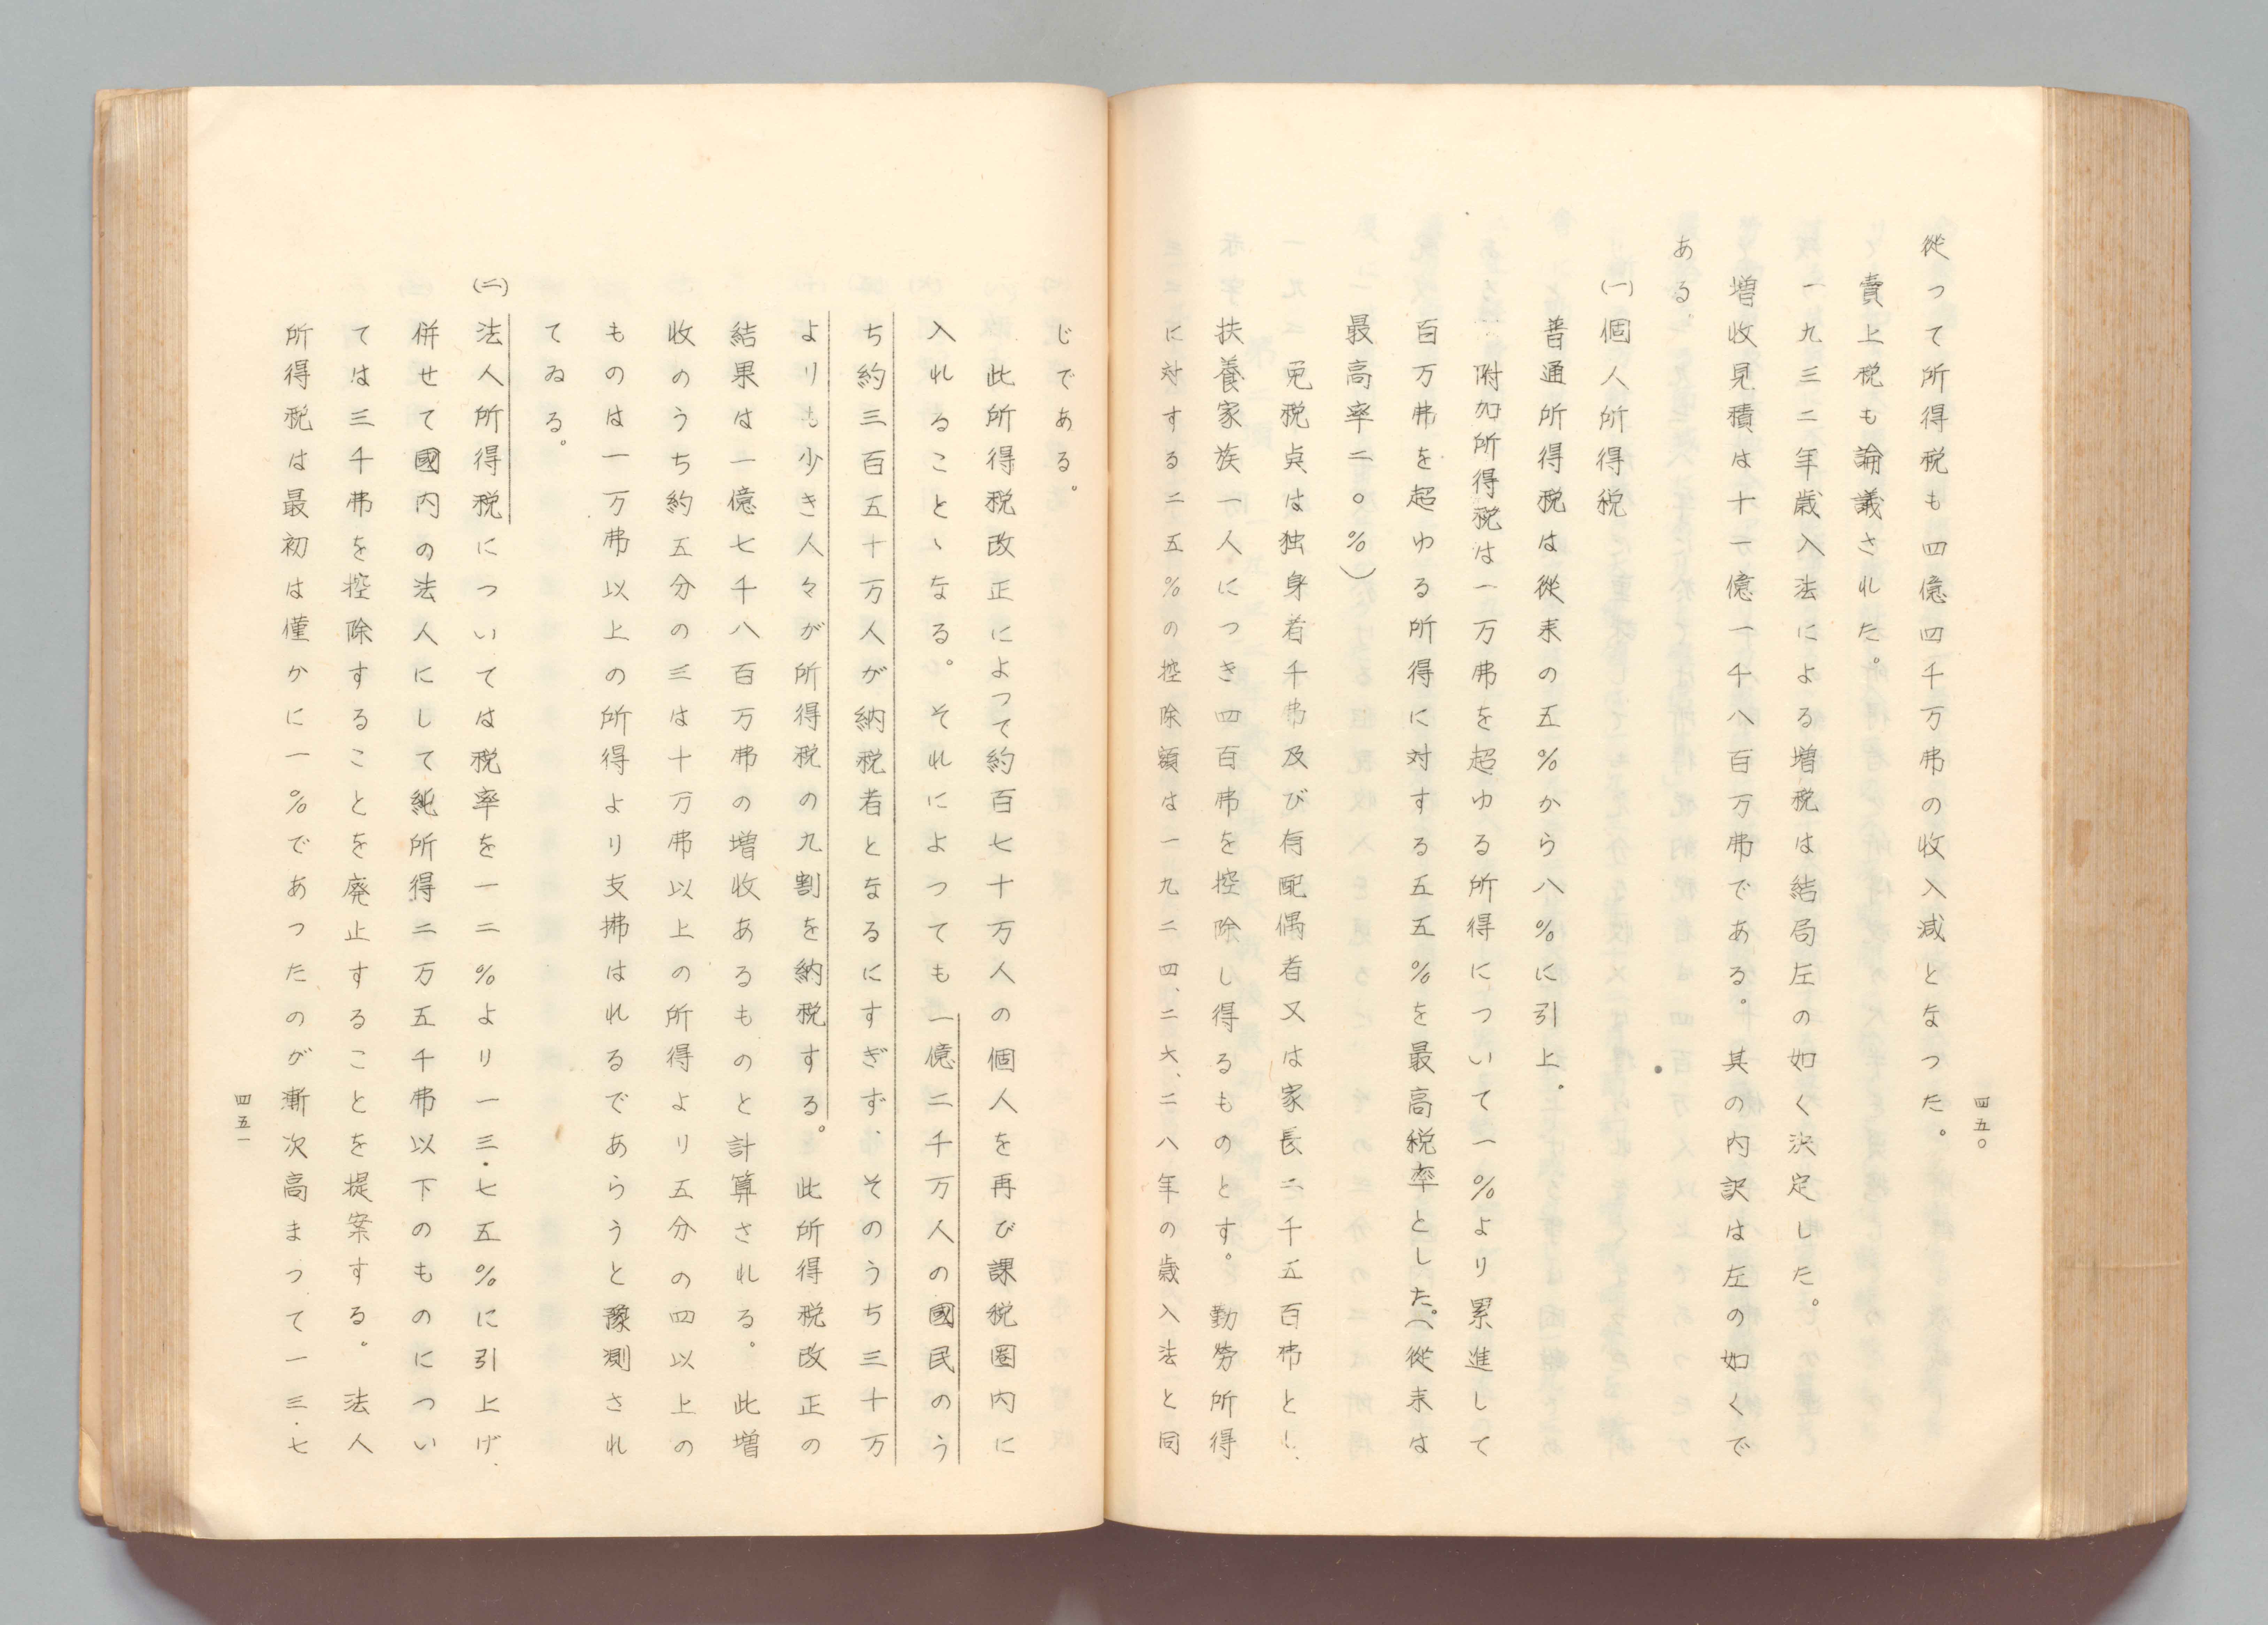 四五〇
從って所得税も四億四千万弗の收入減となつた。
賣上税も論議された。
一九三二年歳入法による増税は結局左の如く決定した。
増收見積は十一億一千八百万弗である。其の内訳は左の如くで
ある、
(一)個人所得税
普通所得税は從来の五%から八%に引上。
附加所得税は一万弗を超ゆる所得について一%より累進して
百万弗を超ゆる所得に対する五五%を最高税率とした。(從来は
最高率二〇%)
免税点は独身者千弗及び有配偶者又は家長二千五百弗とし、
扶養家族一人につき四百弗を控除し得るものとす。勤勞所得
に対する二五%の控除額は一九二四、二六、二八年の歳入法と同
じである。
此所得税改正によつて約百七十万人の個人を再び課税圏内に
入れることゝなる。それによつても一億二千万人の國民のう
ち約三百五十万人が納税者となるにすぎず、そのうち三十万
よりも少き人々が所得税の九割を納税する。此所得税改正の
結果は一億七千八百万弗の増收あるものと計算される。此増
收のうち約五分の三は十万弗以上の所得より五分の四以上の
ものは一万弗以上の所得より支拂はれるであらうと豫測され
てゐる。
(二)法人所得税については税率を一二%より一三・七五%に引上げ、
併せて國内の法人にして純所得二万五千弗以下のものについ
ては三千弗を控除することを廃止することを提案する。法人
所得税は最初は僅かに一%であつたのが漸次高まつて一三・七
四五一